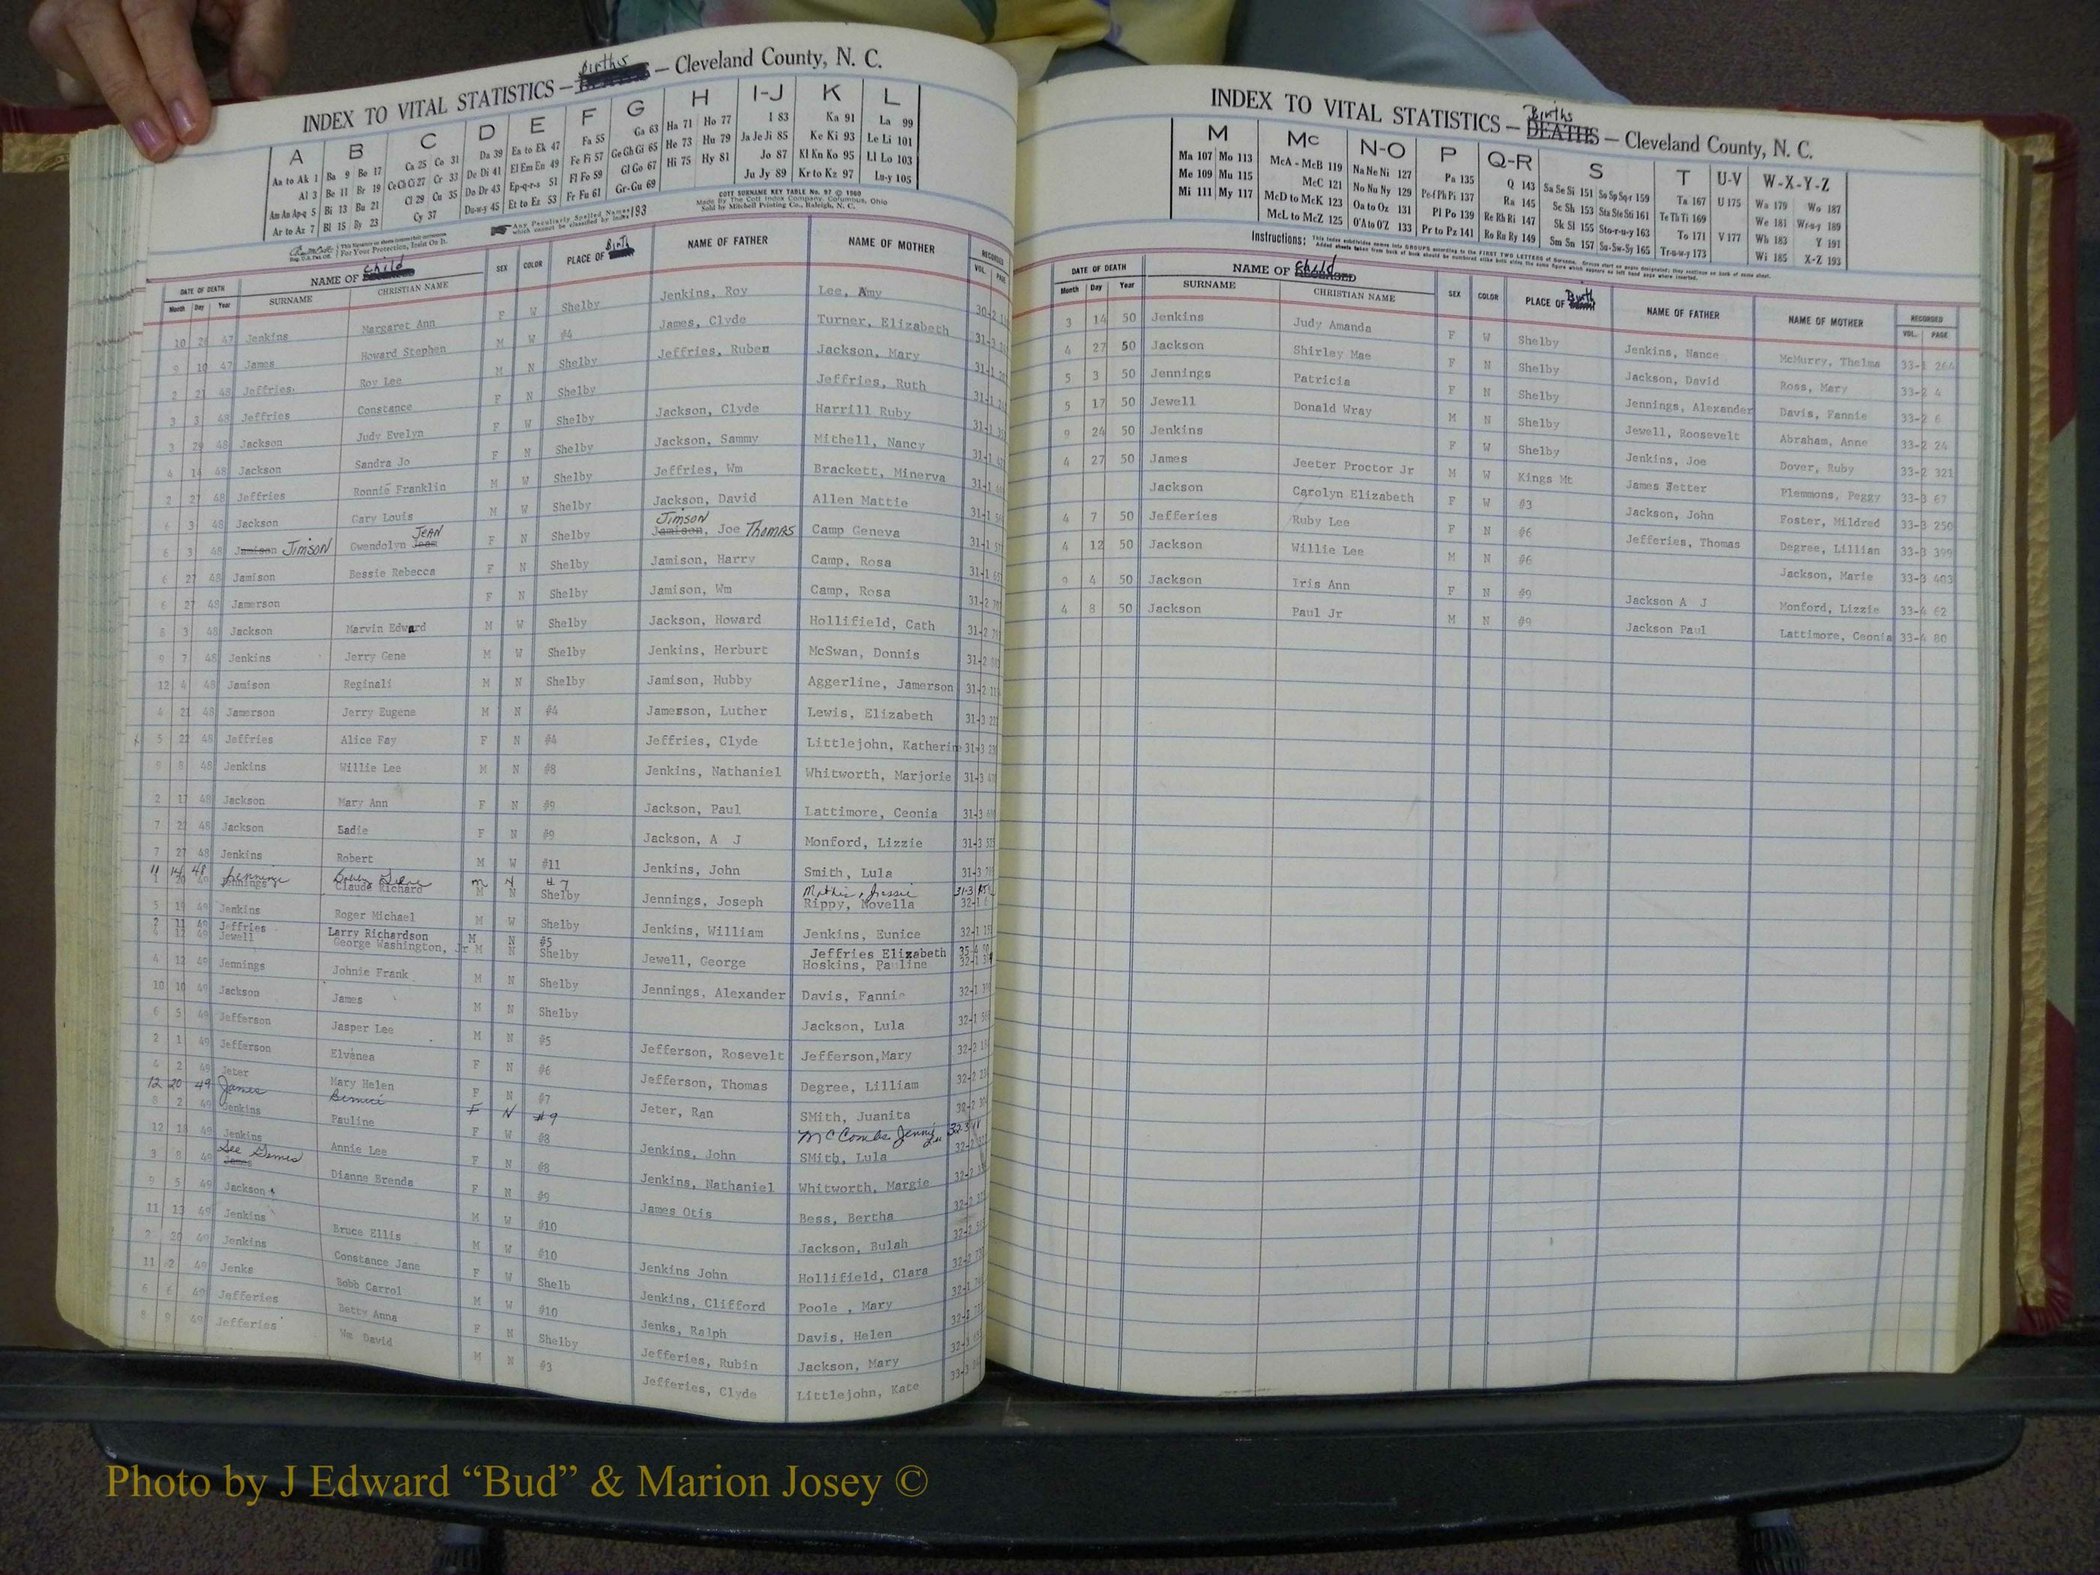 INDEX TO VITAL STATISTICS — Births DEATHS — Cleveland County, N. C.
A B C D E F G H I-J K L
Aa to Ak 1 Ba 9 Bo 17 Ca 25 Co 31 Da 39 Ea to Ek 47 Fa 55 Ga 63 Ha 71 Ho 77 I 83 Ka 91 La 99
Al 3 Be 11 Br 19 Ce Ch Ci 27 Cr 33 De Di 41 El Em En 49 Fe Fi 57 Ge Gh Gi 65 He 73 Hu 79 Ja Je Ji 85 Ke Ki 93 Le Li 101
Am An Ap-q 5 Bi 13 Bu 21 Cl 29 Cu 35 Do Dr 43 Ep-q-r-s 51 Fl Fo 59 Gl Go 67 Hi 75 Hy 81 Jo 87 Kl Kn Ko 95 Ll Lo 103
Ar to Az 7 Bl 15 By 23 Cy 37 Du-w-y 45 Et to Ez 53 Fr Fu 61 Gr-Gu 69 Ju Jy 89 Kr to Kz 97 Lu-y 105
COTT SURNAME KEY TABLE No. 97 © 1960
Made By The Cott Index Company, Columbus, Ohio
Sold by Mitchell Printing Co., Raleigh, N. C.
Any Peculiarly Spelled Names which cannot be classified by Index 193
For Your Protection, Insist On It.
DATE OF DEATH NAME OF Child SEX COLOR PLACE OF Birth NAME OF FATHER NAME OF MOTHER RECORDED
Month Day Year SURNAME CHRISTIAN NAME VOL. PAGE
10 47 Jenkins Margaret Ann F W Shelby Jenkins, Roy Lee, Amy 30-2
9 10 47 James Howard Stephen M W #4 James, Clyde Turner, Elizabeth 31-3
2 21 48 Jeffries Roy Lee M N Shelby Jeffries, Ruben Jackson, Mary 31-1
3 3 48 Jeffries Constance F N Shelby Jeffries, Ruth 31-1
3 29 48 Jackson Judy Evelyn F W Shelby Jackson, Clyde Harrill Ruby 31-1
4 48 Jackson Sandra Jo F N Shelby Jackson, Sammy Mithell, Nancy 31-1
2 48 Jeffries Ronnie Franklin M W Shelby Jeffries, Wm Brackett, Minerva 31-1
6 3 48 Jackson Gary Louis M W Shelby Jackson, David Allen Mattie 31-1
6 3 48 Jamison JIMSON Gwendolyn Jean JEAN F N Shelby Jamison, JIMSON Joe THOMAS Camp Geneva 31-1
6 27 48 Jamison Bessie Rebecca F N Shelby Jamison, Harry Camp, Rosa 31-1
6 27 48 Jamerson F N Shelby Jamison, Wm Camp, Rosa 31-2
8 3 48 Jackson Marvin Edward M W Shelby Jackson, Howard Hollifield, Cath 31-2
9 7 48 Jenkins Jerry Gene M W Shelby Jenkins, Herburt McSwan, Donnis 31-2
12 4 48 Jamison Reginali M N Shelby Jamison, Hubby Aggerline, Jamerson 31-2
4 21 48 Jamerson Jerry Eugene M N #4 Jamerson, Luther Lewis, Elizabeth 31-3
5 22 48 Jeffries Alice Fay F N #4 Jeffries, Clyde Littlejohn, Katherin 31-3
9 8 48 Jenkins Willie Lee M N #8 Jenkins, Nathaniel Whitworth, Marjorie 31-3
2 17 48 Jackson Mary Ann F N #9 Jackson, Paul Lattimore, Ceonia 31-3
7 27 48 Jackson Sadie F N #9 Jackson, A J Monford, Lizzie 31-3
7 27 48 Jenkins Robert M W #11 Jenkins, John Smith, Lula 31-3
11 14 48 Jennings Bobby Gene m N #7 Mathis, Jessie 31-3
1 20 49 Jennings Claude Richard M N Shelby Jennings, Joseph Rippy, Novella 32-1
5 19 49 Jenkins Roger Michael M W Shelby Jenkins, William Jenkins, Eunice 32-1
2 11 49 Jeffries Larry Richardson M N #5 Jeffries Elizabeth 35-4
4 12 49 Jewell George Washington, Jr M N Shelby Jewell, George Hoskins, Pauline 32-1
4 12 49 Jennings Johnie Frank M N Shelby Jennings, Alexander Davis, Fannie 32-1
10 10 49 Jackson James M N Shelby Jackson, Lula 32-1
6 5 49 Jefferson Jasper Lee M N #5 Jefferson, Rosevelt Jefferson,Mary 32-2
2 1 49 Jefferson Elvanea F N #6 Jefferson, Thomas Degree, Lilliam 32-2
4 2 49 Jeter Mary Helen F N #7 Jeter, Ran SMith, Juanita 32-2
12 20 49 James Bernice F N #9 McCombs Jennie 32-3
8 2 49 Jenkins Pauline F W #8 Jenkins, John SMith, Lula 32-2
12 18 49 Jenkins Annie Lee F N #8 Jenkins, Nathaniel Whitworth, Margie 32-2
3 8 49 See James Dianne Brenda F N #9 James Otis Bess, Bertha 32-2
9 5 49 Jackson M W #10 Jackson, Bulah 32-2
11 13 49 Jenkins Bruce Ellis M W #10 Jenkins John Hollifield, Clara 32-2
2 20 49 Jenkins Constance Jane F W Shelb Jenkins, Clifford Poole , Mary 32-1
11 2 49 Jenks Bobb Carrol M W #10 Jenks, Ralph Davis, Helen 32-2
6 6 49 Jefferies Betty Anna F N Shelby Jefferies, Rubin Jackson, Mary 32-3
8 9 49 Jefferies Wm David M N #3 Jefferies, Clyde Littlejohn, Kate 33-3
INDEX TO VITAL STATISTICS — Births DEATHS — Cleveland County, N. C.
M Mc N-O P Q-R S T U-V W-X-Y-Z
Ma 107 Mo 113 McA - McB 119 Na Ne Ni 127 Pa 135 Q 143 Sa Se Si 151 So Sp Sq-r 159 Ta 167 U 175 Wa 179 Wo 187
Me 109 Mu 115 McC 121 No Nu Ny 129 Pe-f Ph Pi 137 Ra 145 Sc Sh 153 Sta Ste Sti 161 Te Th Ti 169 We 181 Wr-u-y 189
Mi 111 My 117 McD to McK 123 Oa to Oz 131 Pl Po 139 Re Rh Ri 147 Sk Sl 155 Sto-r-u-y 163 To 171 V 177 Wh 183 Y 191
McL to McZ 125 O'A to O'Z 133 Pr to Pz 141 Ro Ru Ry 149 Sm Sn 157 Su-Sw-Sy 165 Tr-u-w-y 173 Wi 185 X-Z 193
Instructions: This index subdivides names into GROUPS according to the FIRST TWO LETTERS of Surname.
DATE OF DEATH NAME OF Child DECEASED SEX COLOR PLACE OF Birth NAME OF FATHER NAME OF MOTHER RECORDED
Month Day Year SURNAME CHRISTIAN NAME VOL. PAGE
3 14 50 Jenkins Judy Amanda F W Shelby Jenkins, Nance McMurry, Thelma 33-1 264
4 27 50 Jackson Shirley Mae F N Shelby Jackson, David Ross, Mary 33-2 4
5 3 50 Jennings Patricia F N Shelby Jennings, Alexander Davis, Fannie 33-2 6
5 17 50 Jewell Donald Wray M N Shelby Jewell, Roosevelt Abraham, Anne 33-2 24
9 24 50 Jenkins F W Shelby Jenkins, Joe Dover, Ruby 33-2 321
4 27 50 James Jeeter Proctor Jr M W Kings Mt James Jetter Plemmons, Peggy 33-3 67
Jackson Carolyn Elizabeth F W #3 Jackson, John Foster, Mildred 33-3 250
4 7 50 Jefferies Ruby Lee F N #6 Jefferies, Thomas Degree, Lillian 33-3 399
4 12 50 Jackson Willie Lee M N #6 Jackson, Marie 33-3 403
9 4 50 Jackson Iris Ann F N #9 Jackson A J Monford, Lizzie 33-4 62
4 8 50 Jackson Paul Jr M N #9 Jackson Paul Lattimore, Ceonia 33-4 80
Photo by J Edward “Bud” & Marion Josey ©